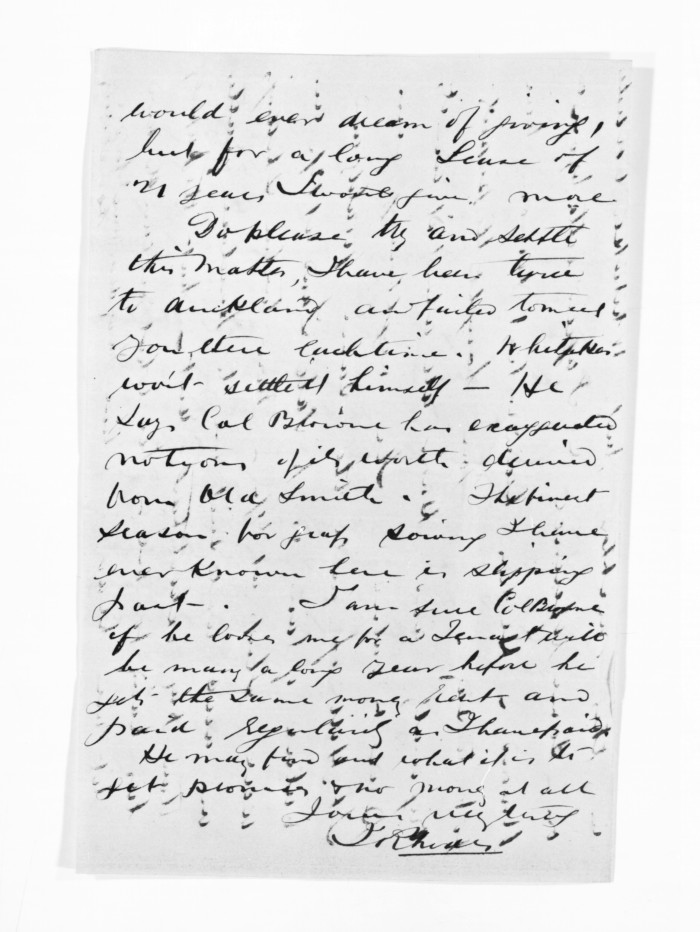 would ever dream of giving,
but for a long Lease of
21 years I would give more
Do please try and settle
this Matter, I have been twice
to Auckland and failed to meet
you there each time. Whitaker
won't settle it himself — He
says Col Browne has exaggerated
notions of its worth derived
from Old Smith. The finest
season for grass sowing I have
ever known here is slipping
past. I am sure Col Browne
if he loses me for a Tenant will
be many a long year before he
gets the same money rent and
paid regularly as I have paid,
He may find out what it is to
get promises & no money at all
Yours very truly